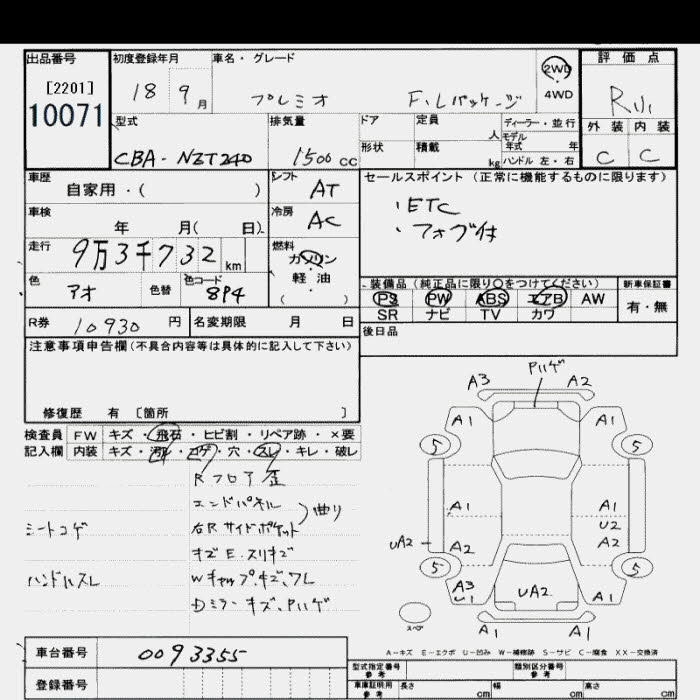 出品番号 初度登録年月 車名・グレード 2WD 評価点
[2201] 18 9月 プレミオ F.Lパッケージ 4WD
10071
型式 排気量 ドア 定員 人 ディーラー・並行 外装 内装
モデル年式 年
CBA-NZT240 1500cc 形状 積載 kg ハンドル 左・右 C C
車歴 自家用・( ) シフト AT セールスポイント(正常に機能するものに限ります)
車検 年 月( 日) 冷房 AC ・ETC
・フォグ付
走行 9万3千732km 燃料 ガソリン・軽油・( )
色 アオ 色替 色コード 8P4 装備品(純正品に限り○をつけてください) 新車保証書
PS PW ABS エアB AW 有・無
SR ナビ TV カワ
R券 10930円 名変期限 月 日 後日品
注意事項申告欄(不具合内容等は具体的に記入して下さい)
修復歴 有 〔箇所 〕
検査員記入欄 FW キズ・飛石・ヒビ割・リペア跡・×要
内装 キズ・汚れ・コゲ・穴・スレ・キレ・破レ
Rフロア歪
エンドパネル
右Rサイドポケット 曲り
シートコゲ
キズE.スリキズ
ハンドルスレ Wキャップキズ、ワレ
Dミラーキズ、Pハゲ
Pハゲ
A3 A2
A1 A1
5 5
A1 A1
U2
UA2 A2 A2
5 5
A3 UA2 A1
U1
スペア A1 A1
A-キズ E-エクボ U-凹み W-補修跡 S-サビ C-腐食 XX-交換済
車台番号 0093355 型式指定番号 参考 類別区分番号 参考
登録番号 車庫証明用 参考 長さ cm 幅 cm 高さ cm